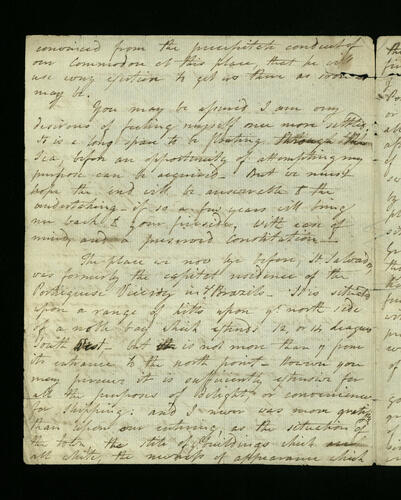 convinced from the precipitate conduct of
our Commodore at this place, that he will
use every exertion to get us there as soon as
may be.
You may be assured I am very
desirous of feeling myself once more settled
It is a long space to be floating through the
Sea, before an opportunity of attempting my
purpose can be acquired - But we must
hope the end will be answerable to the
undertaking - if so a few years will bring
me back to your fireside, with ease of
mind, and a preserved Constitution -
The place we now lye before, St. Salvador
was formerly the capital residence of the
Portuguese Viceroy in ye Brazils - It is situated
upon a range of hills upon ye north side
of a noble bay which extends 12 or 14 leagues
South West, but is not more than 7 from
its entrance to the north point - however you
may perceive it is sufficiently extensive for
all the purposes of delight, or convenience
for Shipping: and I never was more gratified
than upon our entering, as the situation of
the town, the stile of buildings which are
all white, the neatness of appearance which